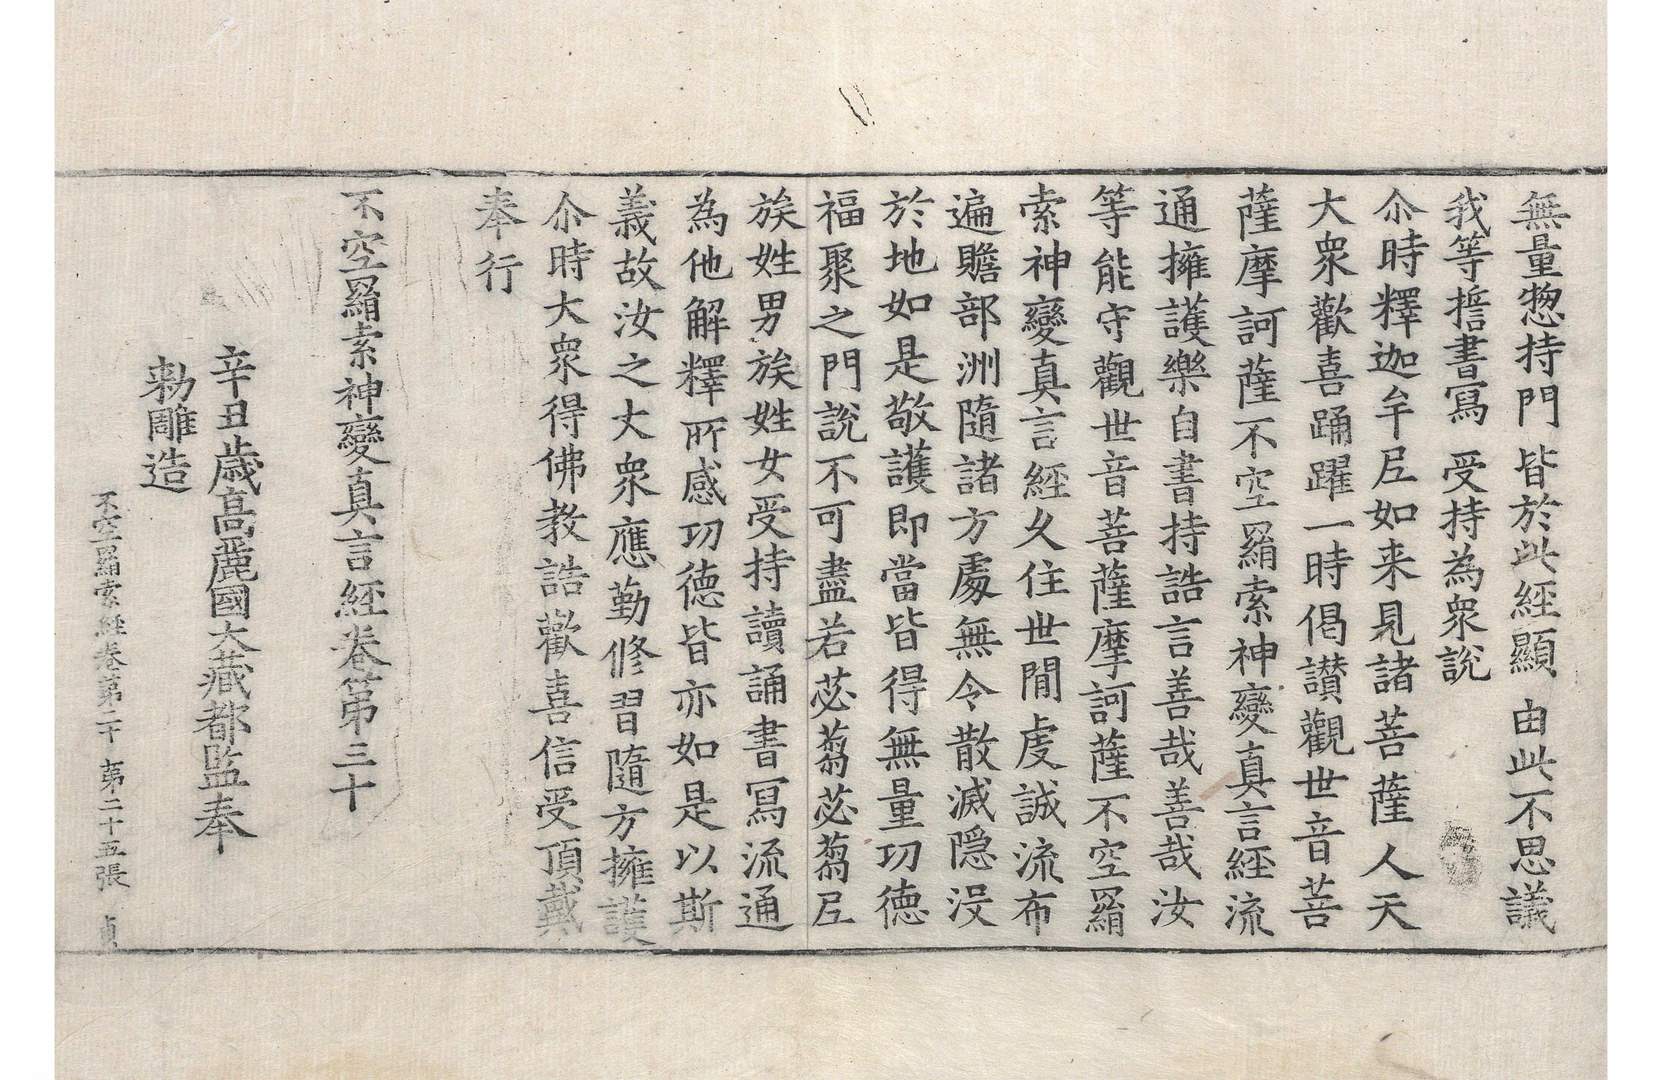 無量惣持門 皆於此經顯 由此不思議
我等擔書寫 受持為衆說
尒時釋迦牟尼如来見諸菩薩人天
大衆歡喜踊躍一時偈讃觀世音菩
薩摩訶薩不空羂索神變真言經流
通擁護樂自書持誥言善哉善哉汝
等能守觀世音菩薩摩訶薩不空羂
索神變真言經久住世間虔誠流布
遍贍部洲隨諸方處無令散滅隱没
於地如是敬護即當皆得無量功德
福聚之門說不可盡若苾蒭苾蒭尼
族姓男族姓女受持讀誦書寫流通
為他解釋所感功德皆亦如是以斯
義故汝之大衆應勤修習隨方擁護
尒時大衆得佛教誥歡喜信受頂戴
奉行
不空羂索神變真言經卷第三十
辛丑歳高麗國大藏都監奉
勑雕造
不空羂索經卷第三十 第二十五張 貞